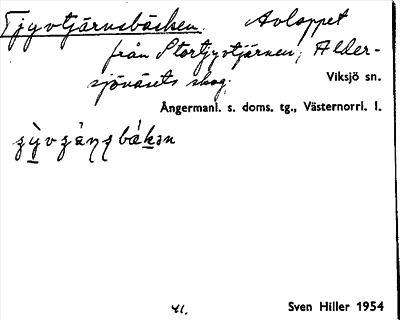 Tjyvtjärnsbäcken. Avloppet
från Stortjyvtjärnen, Alder-
sjönäsets skog.
Viksjö sn.
Ångermanl. s. doms. tg., Västernorrl. l.
Sven Hiller 1954